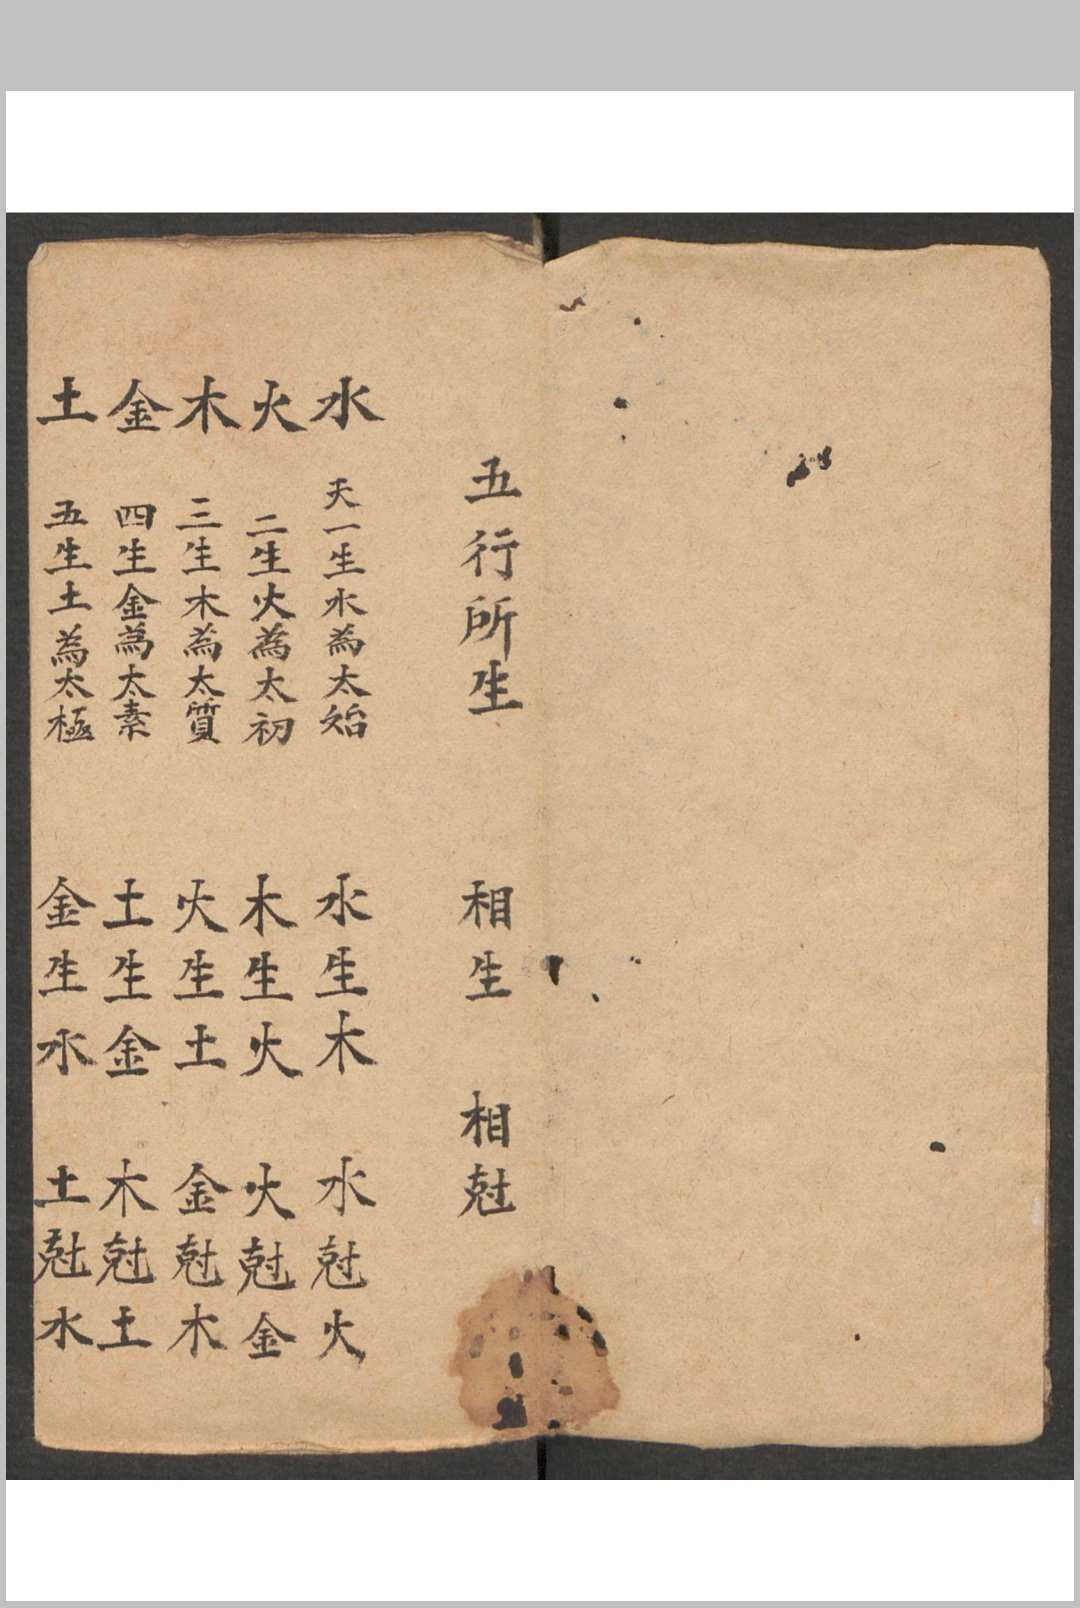 五行所生 相生 相尅
水 天一生水為太始 水生木 水尅火
火 二生火為太初 木生火 火尅金
木 三生木為太質 火生土 金尅木
金 四生金為太素 土生金 木尅土
土 五生土為太極 金生水 土尅水